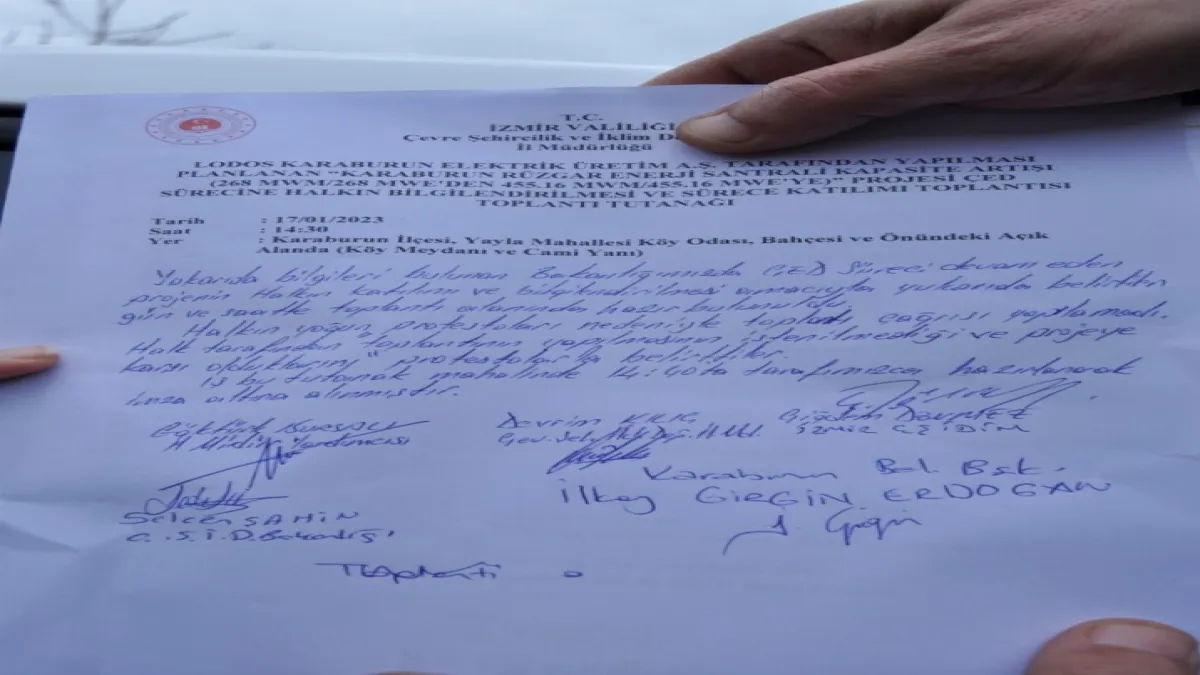 T.C.
İZMİR VALİLİĞİ
Çevre Şehircilik ve İklim
İl Müdürlüğü
LODOS KARABURUN ELEKTRİK ÜRETİM A.Ş. TARAFINDAN YAPILMASI
PLANLANAN “KARABURUN RÜZGAR ENERJİ SANTRALİ KAPASİTE ARTIŞI
(268 MWM/268 MWE'DEN 455.16 MWM/455.16 MWE'YE)” PROJESİ ÇED
SÜRECİNE HALKIN BİLGİLENDİRİLMESİ E SÜRECE KATILIMI TOPLANTISI
TOPLANTI TUTANAĞI
Tarih : 17/01/2023
Saat : 14:30
Yer : Karaburun İlçesi, Yayla Mahallesi Köy Odası, Bahçesi ve Önündeki Açık
Alanda (Köy Meydanı ve Cami Yanı)
Yukarıda bilgileri bulunan Bakanlığımızda ÇED Süreci devam eden
projenin Halkın katılımı ve bilgilendirilmesi amacıyla yukarıda belirtilen
gün ve saatte toplantı alanında hazır bulunuldu.
Halkın yoğun protestoları nedeniyle toplantı çağrısı yapılamadı.
Halk tarafından toplantının yapılmasının istenilmediği ve projeye
karşı olduklarını protestolarla belirttiler.
iş bu tutanak mahalinde 14:40 ta tarafımızca hazırlanarak
imza altına alınmıştır.
Devrim KILIÇ
İl Müdür Yardımcısı
İZMİR ÇŞİDİM
Karaburun Bel. Bşk.
İlkay GİRGİN ERDOĞAN
Selcen ŞAHİN
Ç.Ş.İ.D. Bakanlığı
Toplantı